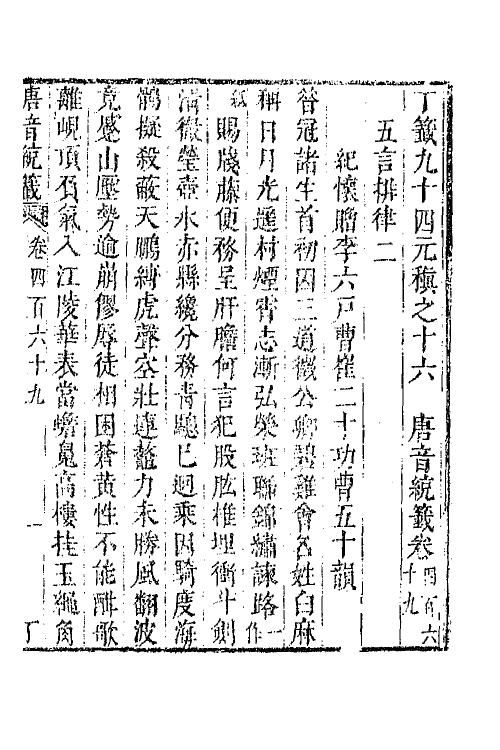 丁籤九十四元稹之十六　唐音統籤卷四百六十九
五言排律二
紀懷贈李六戶曹崔二十功曹五十韻
昔冠諸生首初因三道徵公卿碧雞會名姓白麻
稱日月光遙射煙霄志漸弘榮班聯錦繡諫路一作
紙賜牋藤便務呈肝膽何言犯股肱椎埋衝斗劍
消徹瑩壺氷赤縣纔分務青驄已迴乘因騎度海
鶻擬殺蔽天鵬縛虎聲空壯連鼇力未勝風翻波
竟蹙山壓勢逾崩僇辱徒相困蒼黃性不能酣歌
離峴頂負氣入江陵華表當蟾魄高樓挂玉繩角
唐音統籤 卷四百六十九 一 丁